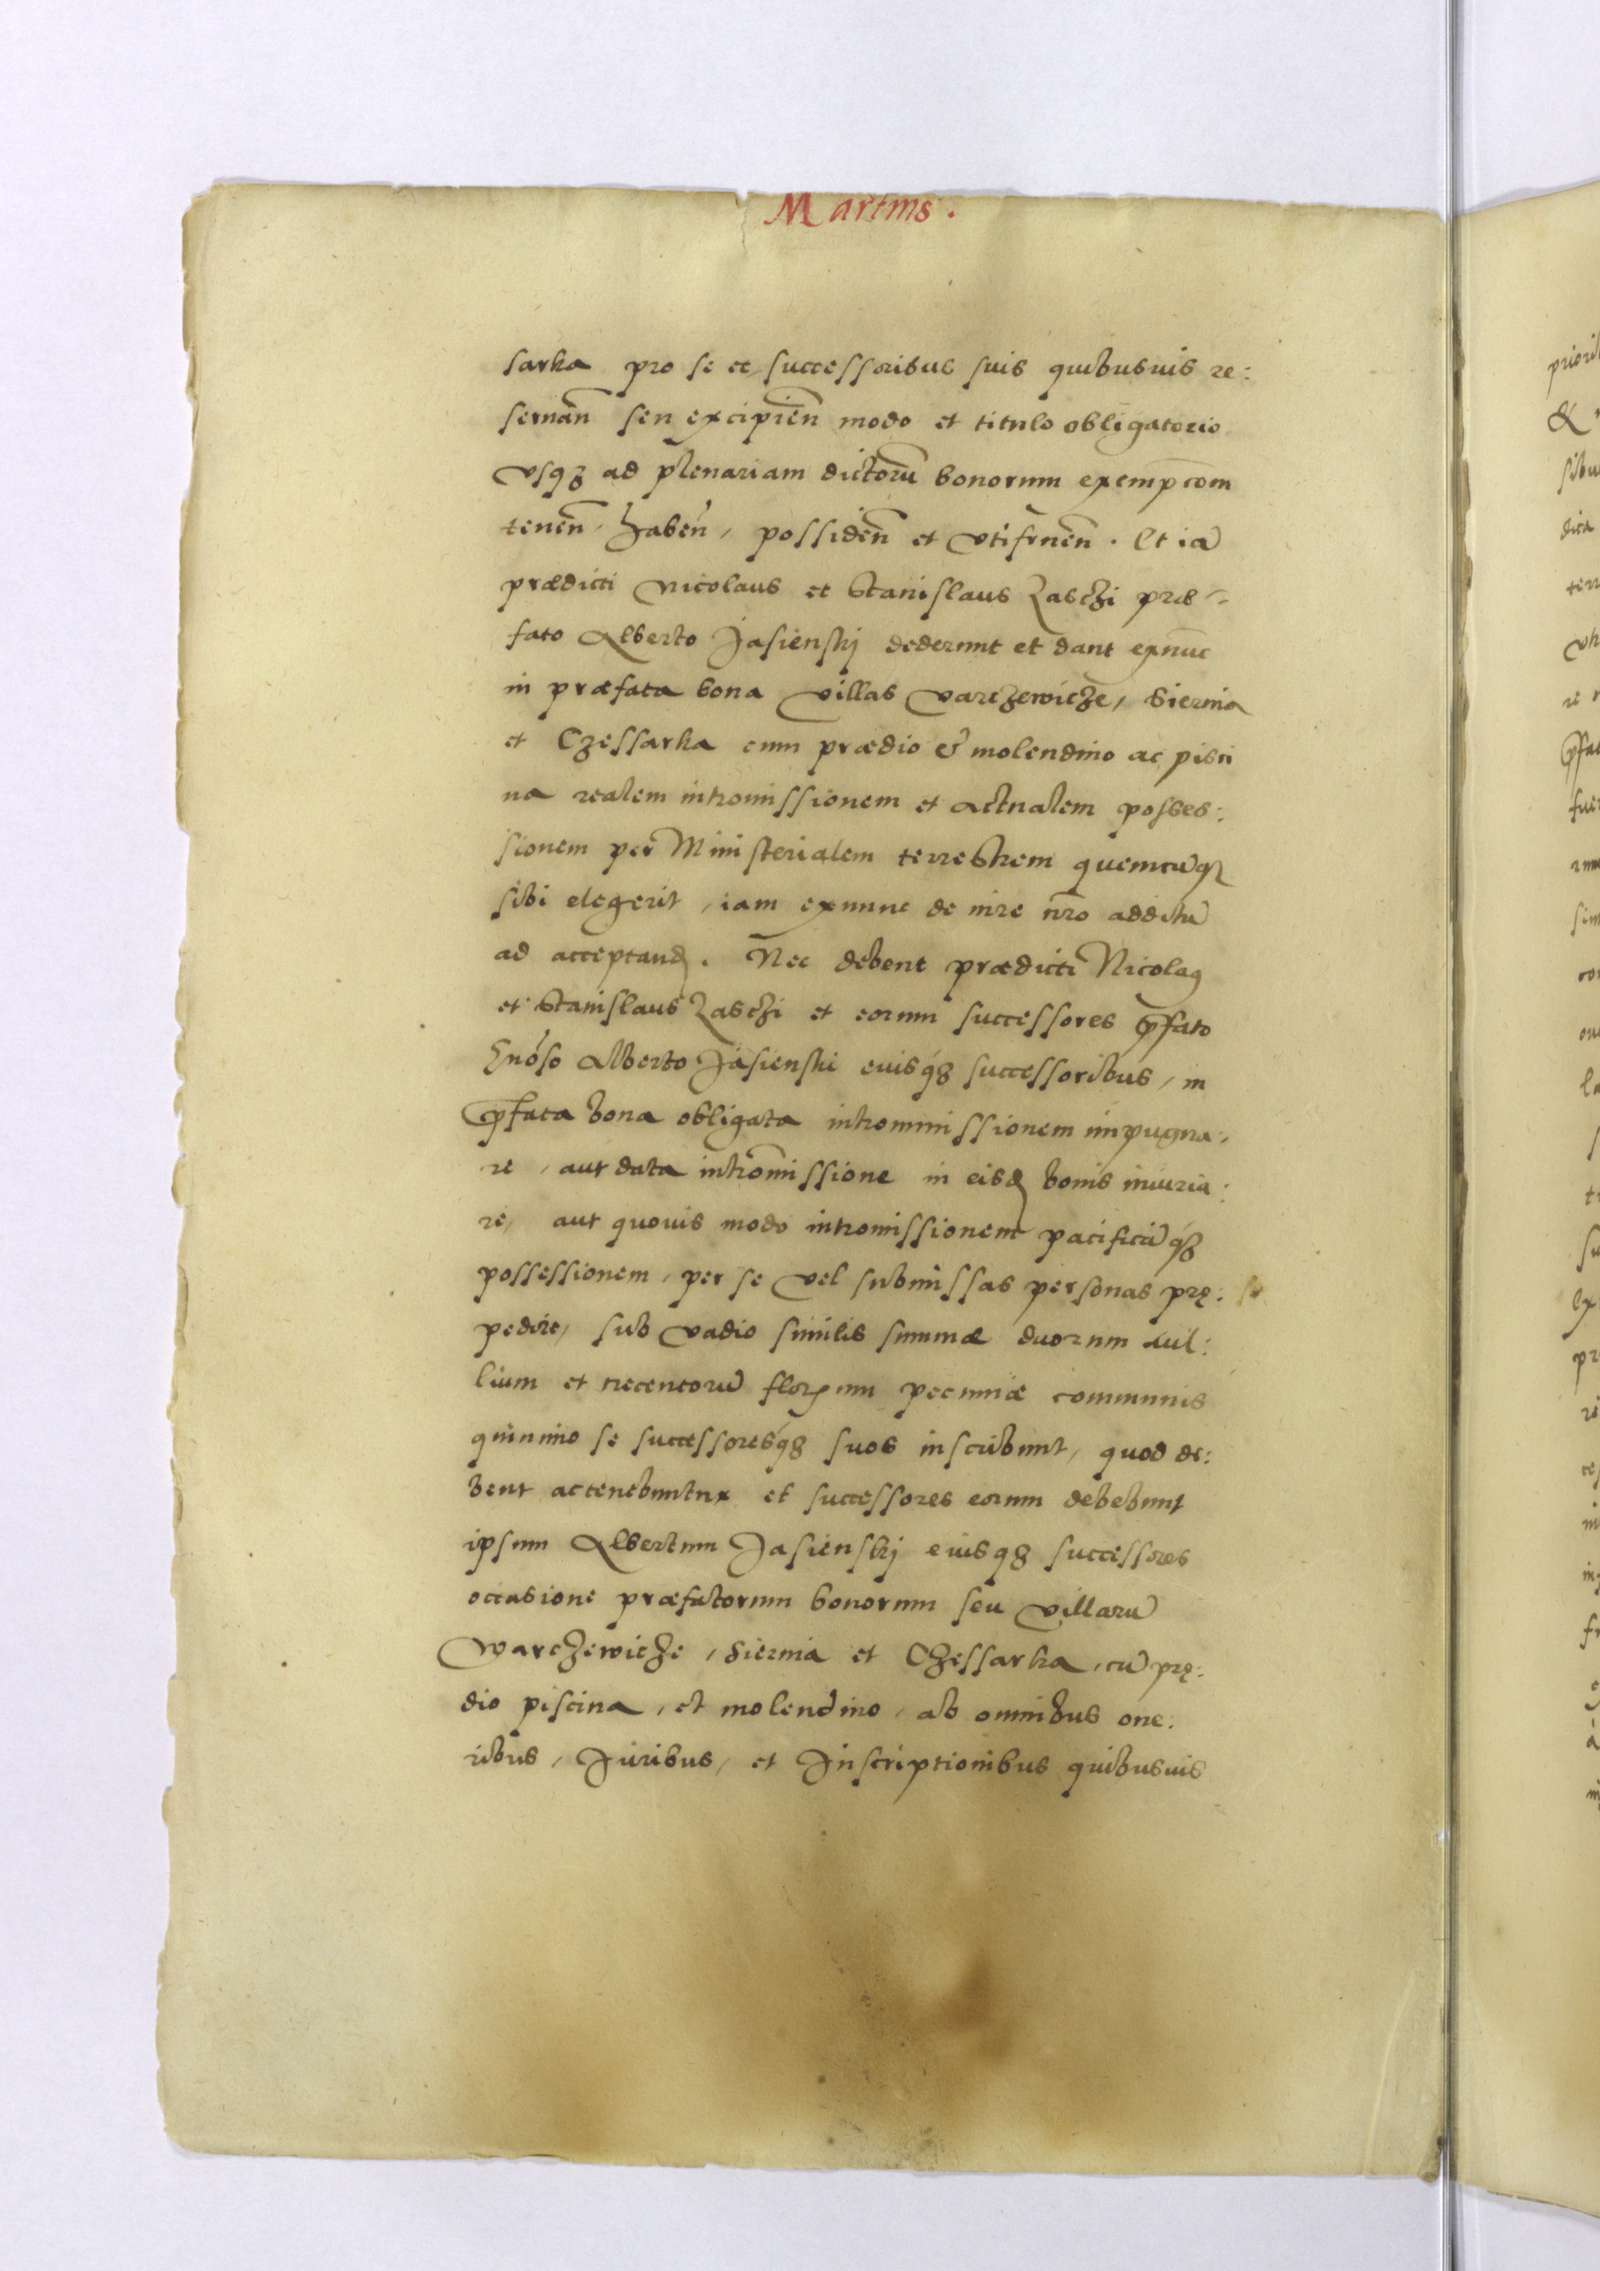 Martius.
sarka pro se et successoribus suis quibusuis re:
seruan̄ seu excipien̄ modo et titulo obligatorio
vsq3 ad plenariam dictorū bonorum exempcōm
tenen̄, haben̄, possiden̄ et vtifruen̄. Et iā
prædicti Nicolaus et Stanislaus Zaschi præ-
fato Alberto Jasienskj dederunt et dant exnūc
in præfata bona villas Varczewicze, Siernia
et Czessarka cum prædio & molendino ac pisci
na realem intromissionem et actualem posses:
sionem per Ministerialem terrestrem quemcūq3
sibi elegerit, iam exnunc de iure nr̄o additū
ad acceptand. Nec debent prædicti Nicolaꝯ
et Stanislaus Zaschi et eorum successores p̄fato
Gnoso Alberto Jasienski eiusq3 successoribus, in
p̄fata bona obligata intromissionem impugna,
re, aut data intromissione in eisd bonis iniuria:
re, aut quouis modo intromissionem pacificāq3
possessionem, per se vel submissas personas prę:
pedire, sub vadio similis summæ duorum mil:
lium et trecentorū florenum pecuniæ communis
quinimo se successoresq3 suos inscribunt, quod de:
bent ac tenebuntur et successores eorum debebunt
ipsum Albertum Jasienskj eiusq3 successores
occasione præfatorum bonorum seu villarū
Warczewicze, Siernia et Czessarka, cū prę:
dio piscina, et molendino, ab omnibus one:
ribus, Juribus, et Inscriptionibus quibusuis